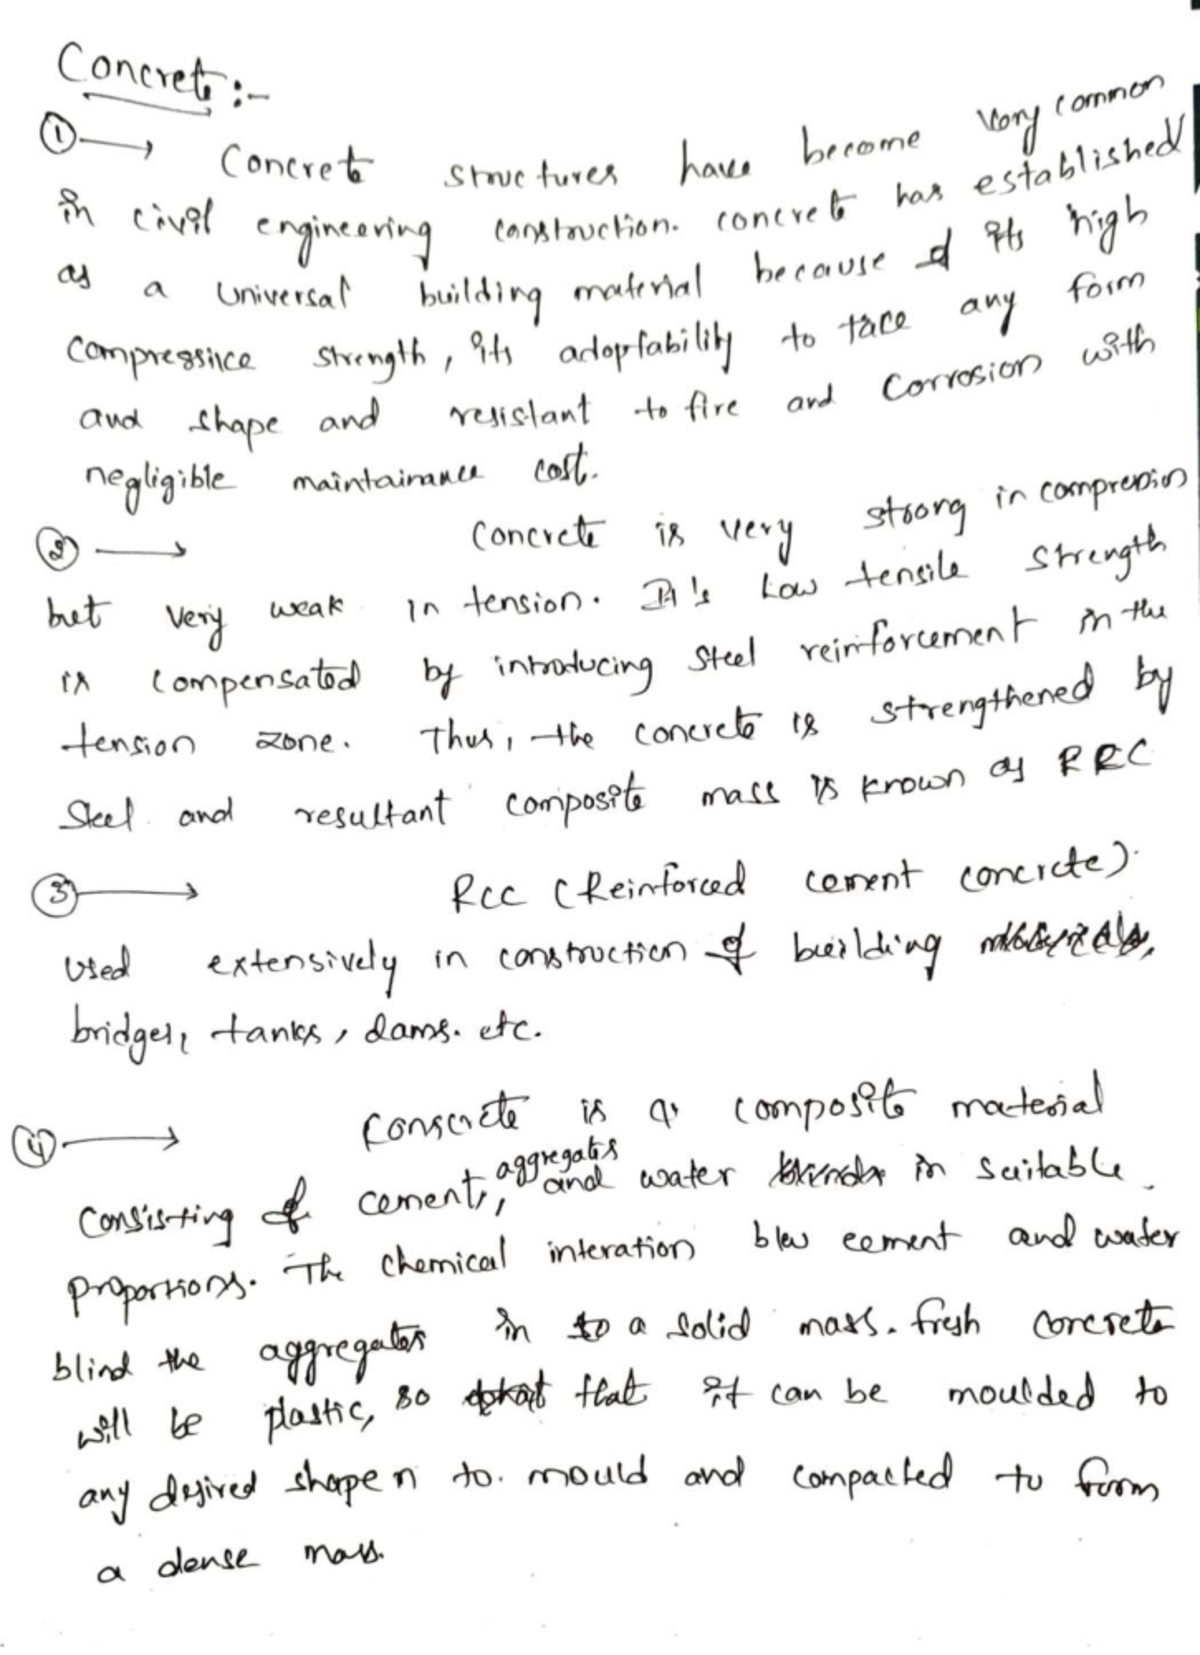 Concrete:-
① → Concrete structures have become very common
in civil engineering construction. concrete has established
as a universal building material because of its high
compressice strength, its adoptability to take any form
and shape and resistant to fire and corrosion with
negligible maintainance cost.
② → Concrete is very stoorg in compression
but very weak in tension. It's Low tensile strength
is compensated by introducing steel reinforcement in the
tension zone. Thus, the concrete is strengthened by
Steel and resultant composite mass is known as RRC
③ → RCC (Reinforced cement concrete).
Used extensively in construction of building
bridges, tanks, dams. etc.
④ → Conscrete is a composite material
consisting of cement, aggregates and water in suitable
proportions. The chemical interation b/w cement and water
blind the aggregates in to a solid mass. fresh concrete
will be plastic, so that it can be moulded to
any desired shape n to. mould and compacted to form
a dense mass.